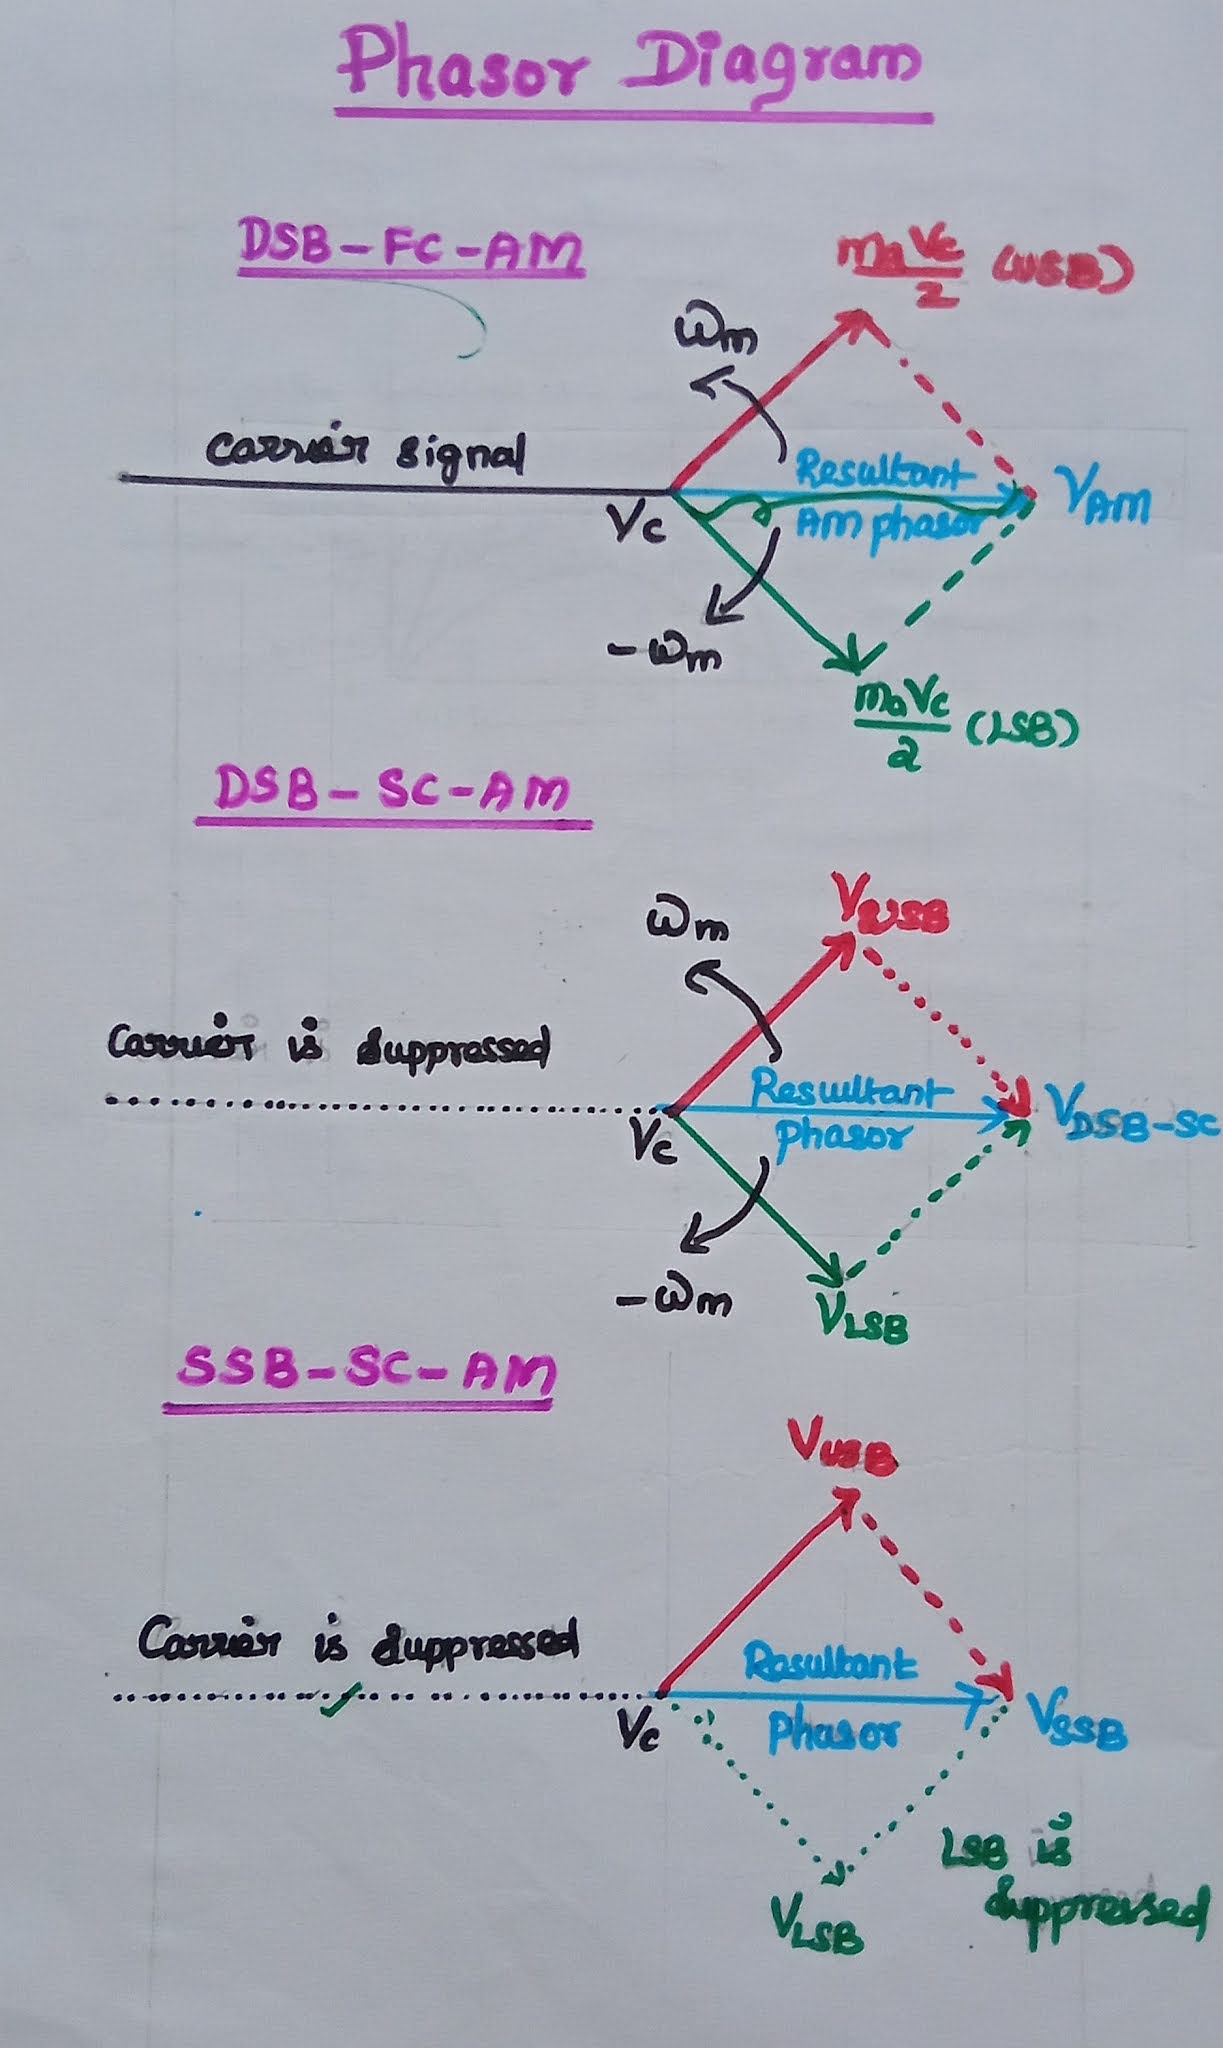 Phasor Diagram
DSB-FC-AM
maVc/2 (USB)
ωm
Carrier signal
Resultant
AM phasor
VAM
Vc
-ωm
maVc/2 (LSB)
DSB-SC-AM
VUSB
ωm
Carrier is suppressed
Resultant
phasor
VDSB-SC
Vc
-ωm
VLSB
SSB-SC-AM
VUSB
Carrier is suppressed
Resultant
phasor
VSSB
Vc
LSB is
suppressed
VLSB